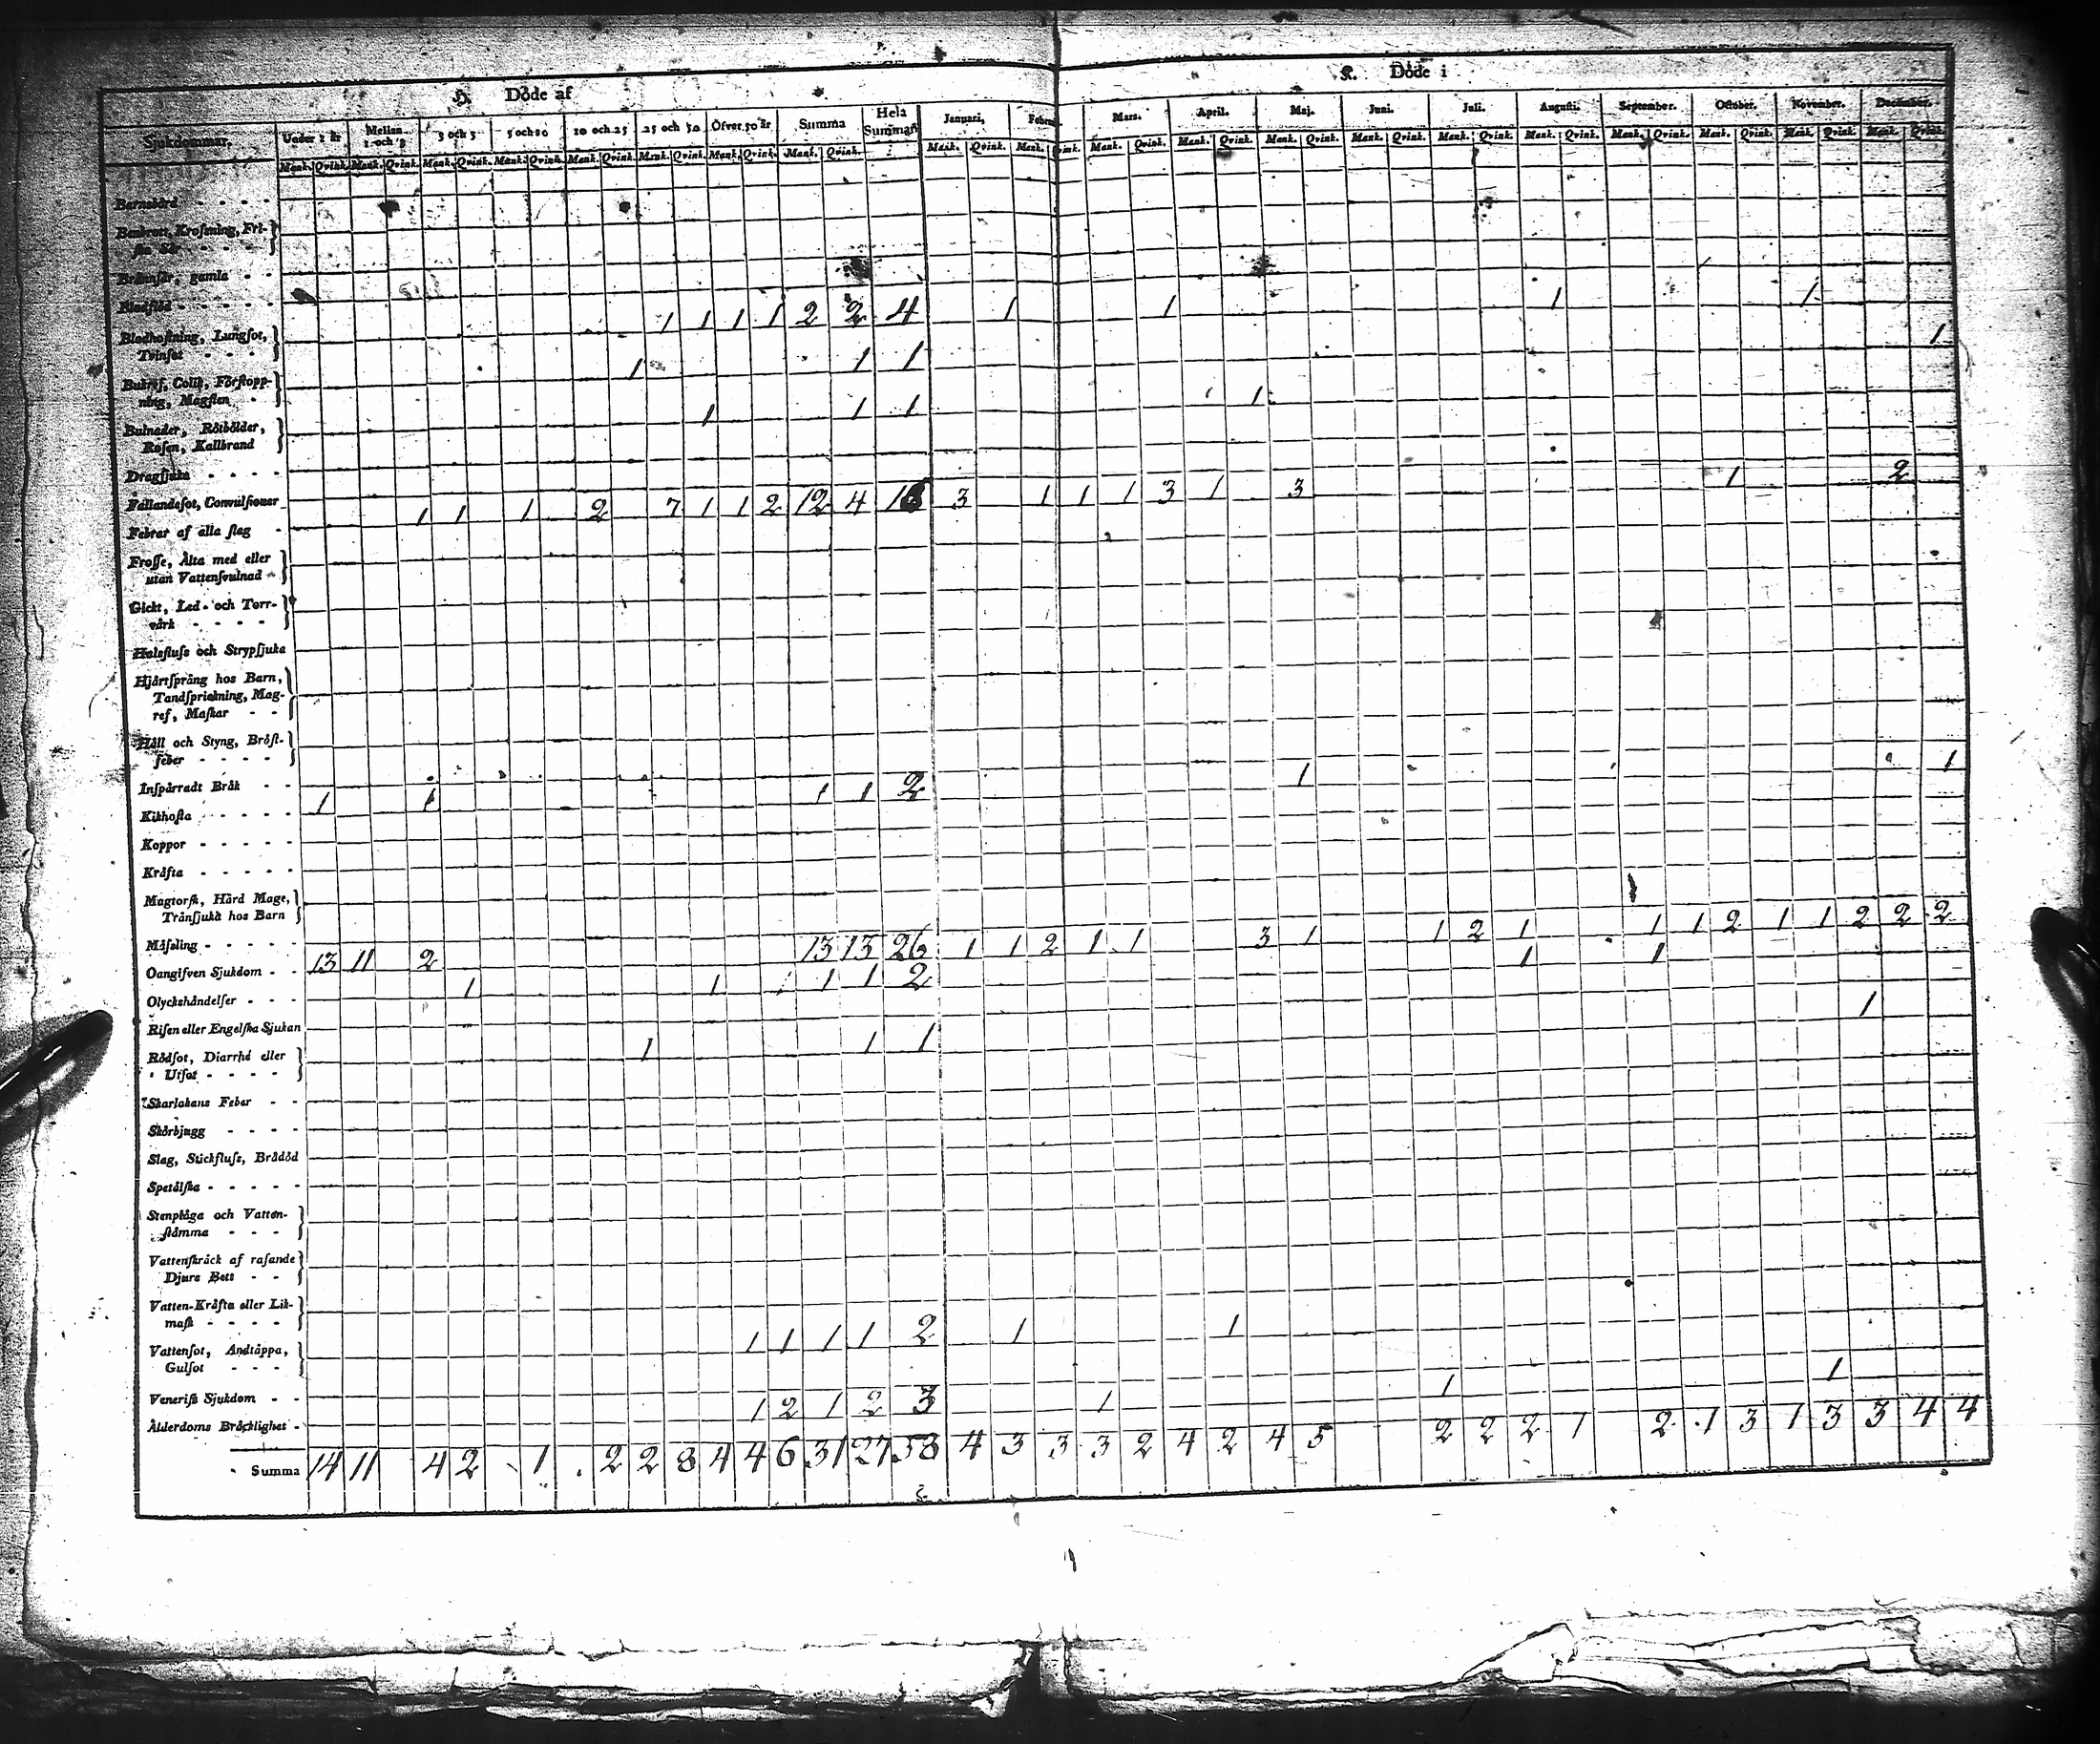 H. Döde af
K. Döde i
Sjukdommar. Under 1 år Mellan 1 och 3 3 och 5 5 och 10 10 och 25 25 och 50 Öfver 50 år Summa Hela Summan Januari, Mars. April. Maj. Juni. Juli. Augusti. September. October. November. December.
Mank. Qvink. Mank. Qvink. Mank. Qvink. Mank. Qvink. Mank. Qvink. Mank. Qvink. Mank. Qvink. Mank. Qvink. Mank. Qvink. Mank. Qvink. Mank. Qvink. Mank. Qvink. Mank. Qvink. Mank. Qvink. Mank. Qvink. Mank. Qvink. Mank. Qvink. Mank. Qvink. Mank. Qvink. Mank. Qvink.
Barnsbörd - - - -
Benbrott, Krossning, Fri-
ska Sår - - -
Brännsår, gamla - -
Blodstöd - - - - -
1 1 1 1 2 2 4 1 1 1 1
Blodhostning, Lungsot,
Tvinsot - - - -
1 1 1 1
Bukref, Colik, Förstopp-
ning, Magsten -
1 1 1 1
Bulnader, Rötbölder,
Rosen, Kallbrand
Dragsjuka - - - -
Fallandesot, Convulsioner
1 1 1 2 7 1 1 2 12 4 16 3 1 1 1 3 1 3 1 2
Febrar af alla slag -
Frosse, Älta med eller
utan Vattensvulnad -
Gickt, Led- och Torr-
värk - - - -
Halsfluss och Strypsjuka
Hjärtsprång hos Barn,
Tandsprickning, Mag-
ref, Maskar - -
Håll och Styng, Bröst-
feber - - - -
Inspärradt Bråk - -
1 1 1 1 2 1 1
Kikhosta - - - - -
Koppor - - - - -
Kräfta - - - - -
Magtorsk, Hård Mage,
Tränsjuka hos Barn
Mässling - - - - -
13 11 2 13 13 26 1 1 2 1 1 3 1 1 2 1 1 1 2 1 1 2 2 2
Oangifven Sjukdom - -
1 1 1 1 2 1 1
Olyckshändelser - - -
Risen eller Engelska Sjukan
1 1 1 1
Rödsot, Diarrhé eller
Utsot - - - -
Skarlakans Feber - -
Skörbjugg - - - -
Slag, Stickfluss, Brådöd
Spetälska - - - - -
Stenplåga och Vatten-
stämma - - -
Vattenskräck af rasande
Djurs Bett - -
Vatten-Kräfta eller Lik-
mask - - - -
1 1 1 1 2 1 1
Vattensot, Andtäppa,
Gulsot - - -
Venerisk Sjukdom - -
1 2 1 2 3 1 1 1
Ålderdoms Bräcklighet -
Summa 14 11 4 2 1 2 2 8 4 4 6 31 27 58 4 3 3 3 2 4 2 4 5 2 2 2 1 2 1 3 1 3 3 4 4